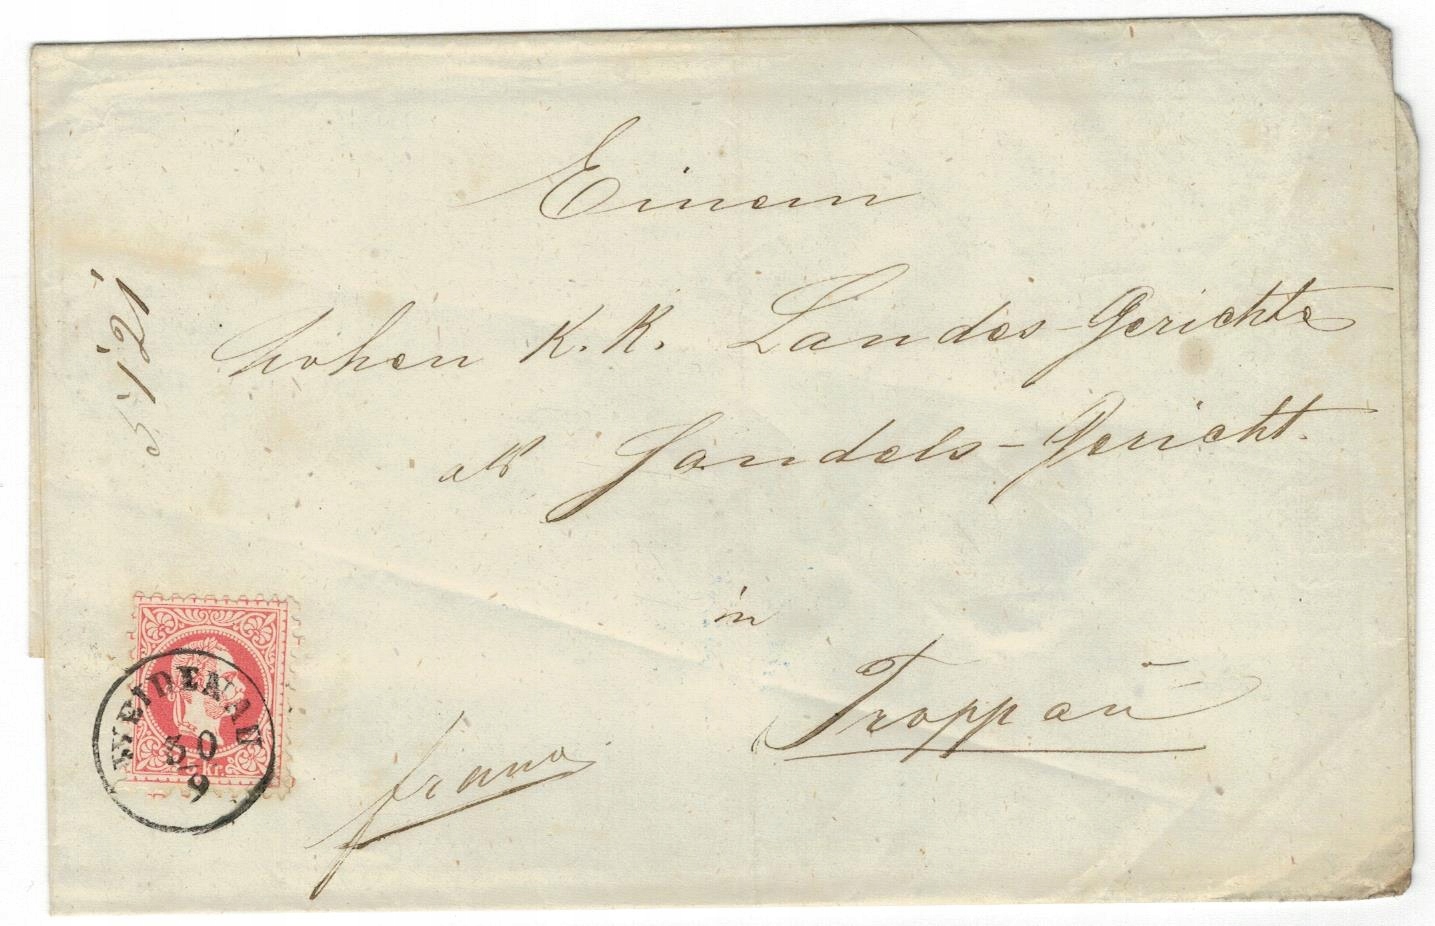 Einem
hohen K. K. Landes-Gerichte
als Handels-Gericht.
in
Troppaŭ
franco
WEIDENAU
30
9
kr.